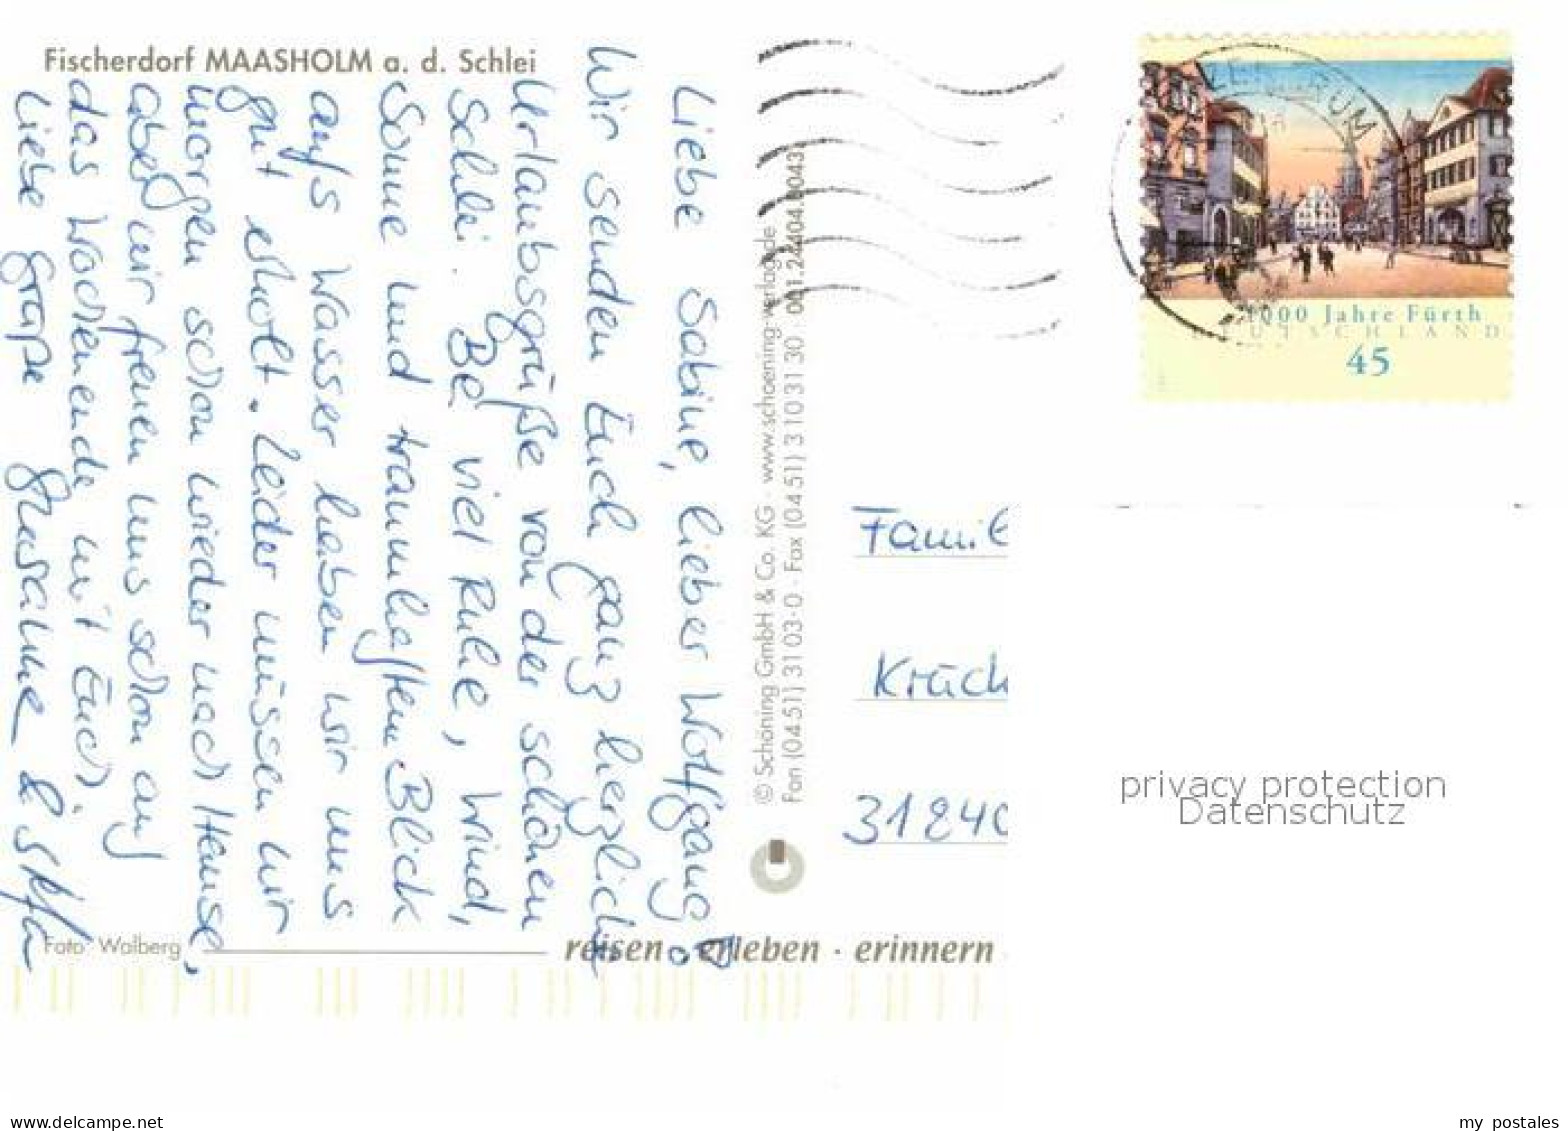 Fischerdorf MAASHOLM a. d. Schlei
Liebe Sabine, lieber Wolfgang!
Wir senden Euch ganz herzliche
Urlaubsgrüße von der schönen
Schlei. Bei viel Ruhe, Wind,
Sonne und traumhaften Blick
aufs Wasser haben wir uns
gut erholt. Leider müssen wir
morgen schon wieder nach Hause,
aber wir freuen uns schon auf
das Wochenende mit Euch.
Liebe Grüße Susanne &
Foto: Walberg
reisen · erleben · erinnern
© Schöning GmbH & Co. KG · www.schoening-verlag.de
Fon (04 51) 31 03-0 · Fax (04 51) 3 10 31 30 · 001.24404.0043
ZENTRUM
1000 Jahre Fürth
DEUTSCHLAND
45
Famil
Krück
31840
privacy protection
Datenschutz
my_postales